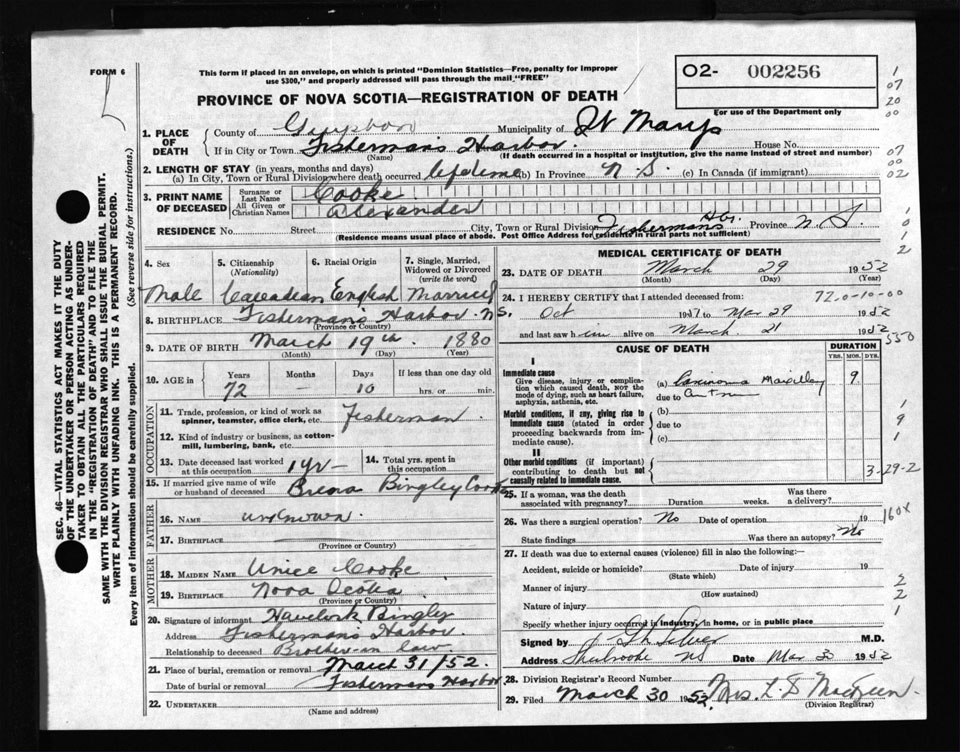 FORM 6
This form if placed in an envelope, on which is printed "Dominion Statistics—Free, penalty for improper
use $300," and properly addressed will pass through the mail "FREE"
PROVINCE OF NOVA SCOTIA—REGISTRATION OF DEATH
02- 002256
For use of the Department only
1
07
20
00
07
00
02
1
0
1
2
SEC. 46—VITAL STATISTICS ACT MAKES IT THE DUTY
OF THE UNDERTAKER OR PERSON ACTING AS UNDER-
TAKER TO OBTAIN ALL THE PARTICULARS REQUIRED
IN THE "REGISTRATION OF DEATH" AND TO FILE THE
SAME WITH THE DIVISION REGISTRAR WHO SHALL ISSUE THE BURIAL PERMIT.
WRITE PLAINLY WITH UNFADING INK. THIS IS A PERMANENT RECORD.
Every item of information should be carefully supplied. (See reverse side for instructions.)
1. PLACE OF DEATH County of Guysboro Municipality of St Marys
If in City or Town Fishermans Harbor. House No.
(Name) (If death occurred in a hospital or institution, give the name instead of street and number)
2. LENGTH OF STAY (in years, months and days)
(a) In City, Town or Rural Division where death occurred lifetime (b) In Province N S. (c) In Canada (if immigrant)
3. PRINT NAME OF DECEASED Surname or Last Name Cooke
All Given or Christian Names Alexander
RESIDENCE No. Street City, Town or Rural Division Fishermans Hbr. Province N. S.
(Residence means usual place of abode. Post Office Address for residents in rural parts not sufficient)
4. Sex 5. Citizenship (Nationality) 6. Racial Origin 7. Single, Married, Widowed or Divorced (write the word)
Male Canadian English Married
8. BIRTHPLACE Fishermans Harbor NS.
(Province or Country)
9. DATE OF BIRTH March 19th 1880
(Month) (Day) (Year)
10. AGE in Years Months Days If less than one day old
72 — 10 hrs. or min.
OCCUPATION
11. Trade, profession, or kind of work as spinner, teamster, office clerk, etc. Fisherman
12. Kind of industry or business, as cotton-mill, lumbering, bank, etc.
13. Date deceased last worked at this occupation 1 yr — 14. Total yrs. spent in this occupation
15. If married give name of wife or husband of deceased Bingley Cooke
FATHER
16. NAME unknown.
17. BIRTHPLACE
(Province or Country)
MOTHER
18. MAIDEN NAME Unice Cooke
19. BIRTHPLACE Nova Scotia
(Province or Country)
20. Signature of informant Havelock Bingley
Address Fishermans Harbor.
Relationship to deceased Brother-in law.
21. Place of burial, cremation or removal March 31/52.
Date of burial or removal Fishermans Harbor
22. UNDERTAKER
(Name and Address)
MEDICAL CERTIFICATE OF DEATH
23. DATE OF DEATH March 29 1952
(Month) (Day) (Year)
72-0-10-00
24. I HEREBY CERTIFY that I attended deceased from:
Oct 1947 to Mar 29 1952
and last saw him alive on March 21 1952
550
CAUSE OF DEATH
DURATION
YRS. MOS. DYS.
I
Immediate cause
Give disease, injury or complication which caused death, NOT the mode of dying, such as heart failure, asphyxia, asthenia, etc.
(a) Carcinoma Maxillary 9.
due to Antrum
Morbid conditions, if any, giving rise to immediate cause (stated in order proceeding backwards from immediate cause).
(b)
due to
(c)
1
9
1
II
Other morbid conditions (if important) contributing to death but not causally related to immediate cause.
3-29-2
25. If a woman, was the death associated with pregnancy? Duration weeks. Was there a delivery?
26. Was there a surgical operation? No Date of operation 19
160x
State findings Was there an autopsy? No
27. If death was due to external causes (violence) fill in also the following:—
Accident, suicide or homicide? Date of injury 19
(State which)
Manner of injury
(How sustained)
Nature of injury
Specify whether injury occurred in industry, in home, or in public place
2
2
1
Signed by M.D.
Address Sherbrooke NS Date Mar 30 1952
28. Division Registrar's Record Number
29. Filed March 30 1952. Mrs. L. D
(Division Registrar)